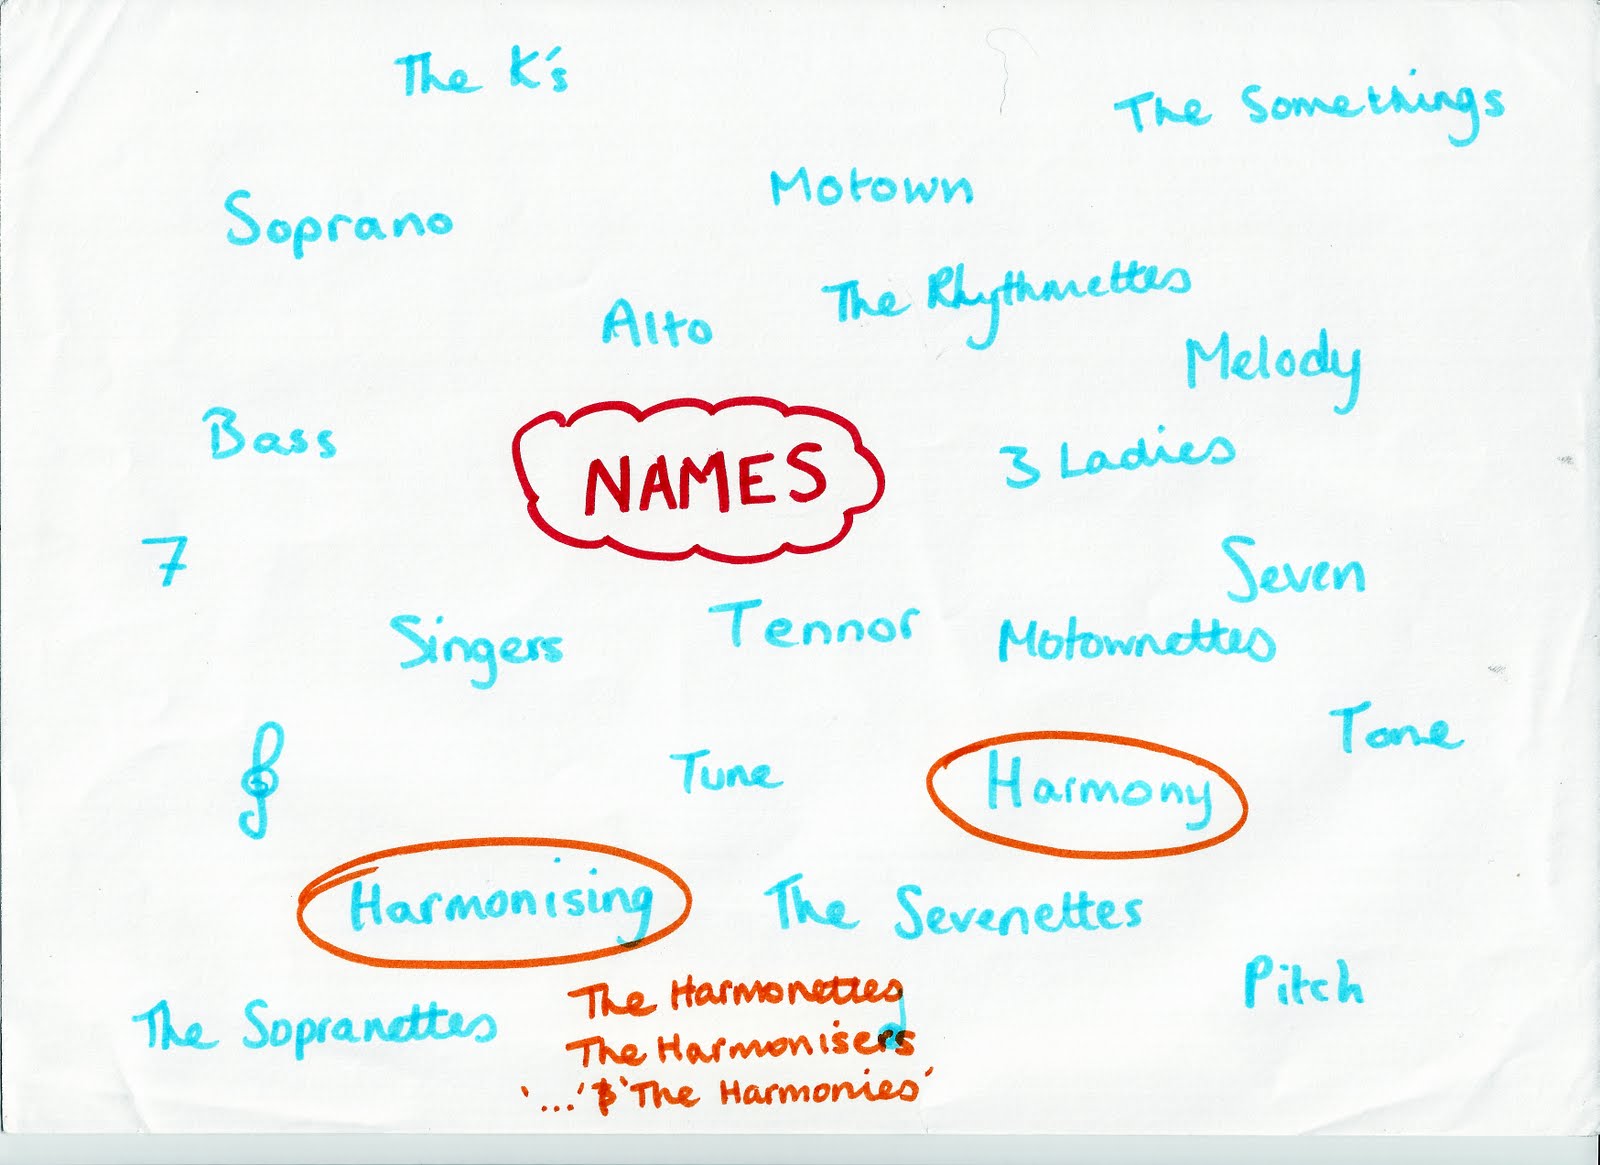 The K's
The Somethings
Motown
Soprano
The Rhythmettes
Alto
Melody
Bass
NAMES
3 Ladies
7
Seven
Singers
Tennor
Motownettes
Tone
Tune
Harmony
Harmonising
The Sevenettes
Pitch
The Sopranettes
The Harmonettes
The Harmonisers
'...' & 'The Harmonies'